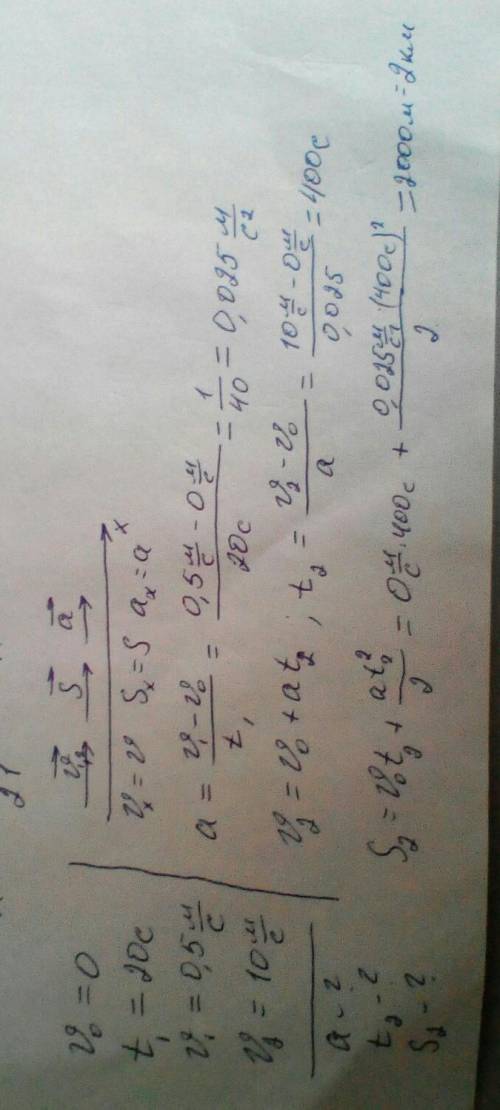 21
v₀ = 0
t₁ = 20с
v₁ = 0,5 м/с
v₂ = 10 м/с
a - ?
t₂ - ?
S₂ - ?
v⃗ S⃗ a⃗
x
vₓ = v Sₓ = S aₓ = a
a = (v₁ - v₀)/t₁ = (0,5 м/с - 0 м/с)/20с = 1/40 = 0,025 м/с²
v₂ = v₀ + at₂ ; t₂ = (v₂ - v₀)/a = (10 м/с - 0 м/с)/0,025 = 400с
S₂ = v₀t₂ + at₂²/2 = 0 м/с · 400с + (0,025 м/с² · (400с)²)/2 = 2000м = 2км